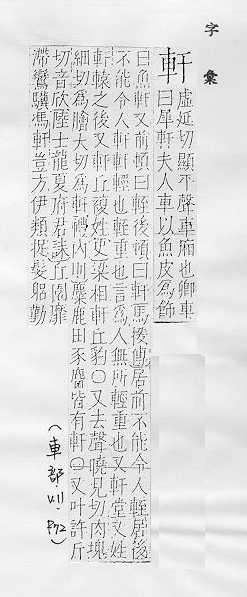 字彙
軒 虛延切顯平聲車廂也卿車
曰犀軒夫人車以魚皮為飾
曰魚軒又前頓曰輊後頓曰軒馬援傳居前不能令人輊居後
不能令人軒軒輕也輊重也言為人無所輕重也又軒堂又姓
軒轅之後又軒丘複姓史梁相軒丘豹〇又去聲曉見切肉塊
細切為膾大切為軒禮內則麋鹿田豕麕皆有軒〇又叶許斤
切音欣陸士龍夏府君誄丘園靡
滯鸞驥馮軒豈方伊類挺髮勤
(車部 V.11 P.72)